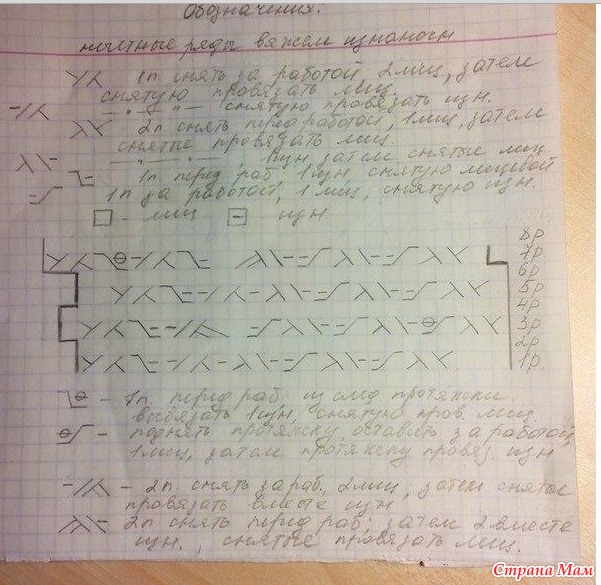 Обозначения:
нечетные ряды вяжем изнаночн
1п. снять за работой, 2 лиц, затем
снятую провязать лиц.
— " — " — снятую провязать изн.
2п снять перед работой, 1 лиц, затем
снятые провязать лиц.
— " — " — , 1 изн, затем снятые лиц.
1п. перед раб, 1 изн, снятую лицевой
1п за работой, 1 лиц, снятую изн.
- лиц - изн.
8р
7р
6р
5р
4р
3р
2р
1р
- 1п. перед раб. из след протяжки
вывязать 1 изн, снятую пров. лиц
- поднять протяжку, оставить за работой,
1 лиц, затем протяжку провяз. изн
- 2п. снять за раб, 2 лиц, затем снятые
провязать вместе изн
2п снять перед раб, затем 2 вместе
изн., снятые провязать лиц.
Страна Мам